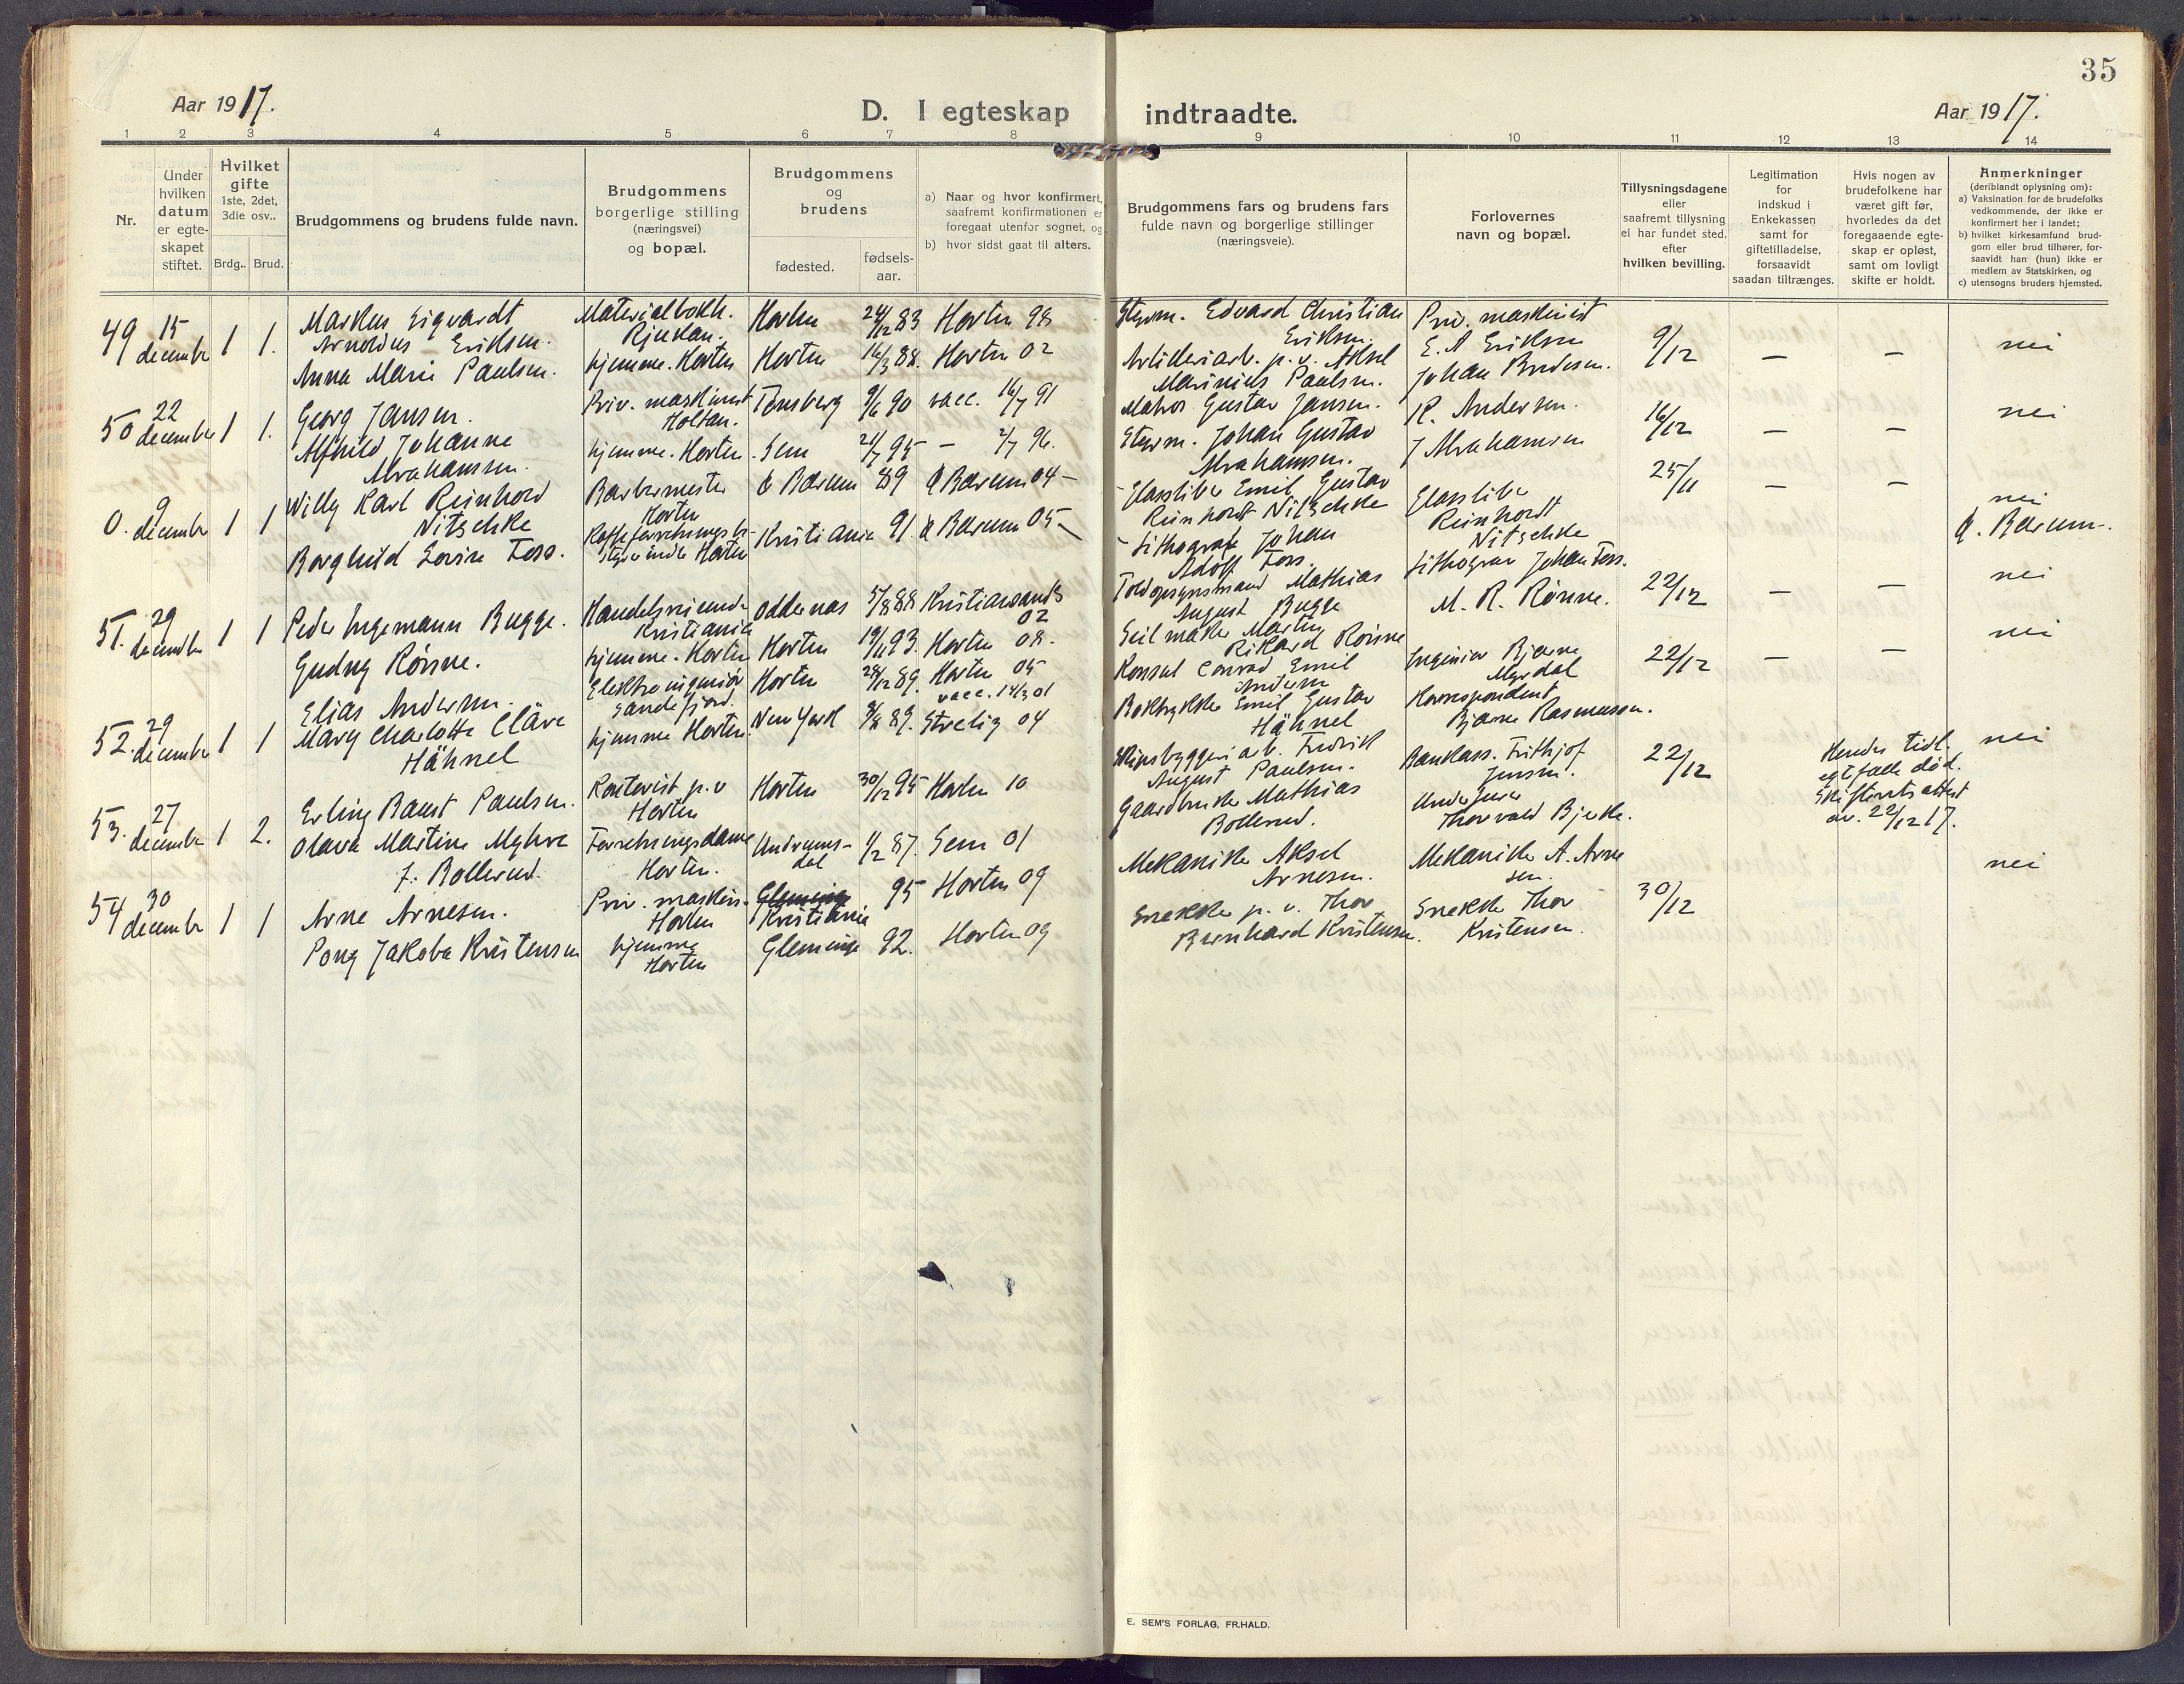 35
Aar 1917.
D. I egteskap indtraadte.
Aar 1917.
1 2 3 4 5 6 7 8 9 10 11 12 13 14
Nr.
Under
hvilken
datum
er egte-
skapet
stiftet.
Hvilket
gifte
1ste, 2det,
3die osv..
Brdg.. Brud.
Brudgommens og brudens fulde navn.
Brudgommens
borgerlige stilling
(næringsvei)
og bopæl.
Brudgommens
og
brudens
fødested.
fødsels-
aar.
a) Naar og hvor konfirmert,
saafremt konfirmationen er
foregaat utenfor sognet, og
b) hvor sidst gaat til alters.
Brudgommens fars og brudens fars
fulde navn og borgerlige stillinger
(næringsveie).
Forlovernes
navn og bopæl.
Tillysningsdagene
eller
saafremt tillysning
ei har fundet sted,
efter
hvilken bevilling.
Legitimation
for
indskud i
Enkekassen
samt for
giftetilladelse,
forsaavidt
saadan tiltrænges.
Hvis nogen av
brudefolkene har
været gift før,
hvorledes da det
foregaaende egte-
skap er opløst,
samt om lovligt
skifte er holdt.
Anmerkninger
(deriblandt oplysning om):
a) Vaksination for de brudefolks
vedkommende, der ikke er
konfirmert her i landet;
b) hvilket kirkesamfund brud-
gom eller brud tilhører, for-
saavidt han (hun) ikke er
medlem av Statskirken, og
c) utensogns bruders hjemsted.
49 15 december 1 1.
Markus Sigvardt
Arnoldus Eriksen.
Materialbokh.
Rjukan.
Horten 24/12 83 Horten 98
Styrm. Edvard Christian
Eriksen.
Priv. maskinist
E. A Eriksen
9/12 — — nei
Anna Marie Paulsen.
hjemme. Horten
Horten 16/3 88. Horten 02
Artilleriarb. p.v. Aksel
Marinius Paulsen.
Johan Bredesen.
50 22 december 1 1.
Georg Jansen.
Priv. maskinist
Holtan.
Tønsberg 9/6 90 vacc. 16/7 91
Matros Gustav Jansen.
R. Andersen.
16/12 — — nei
Alfhild Johanne
Abrahamsen.
hjemme. Horten
Sem 21/7 95 — 2/7 96.
Styrm. Johan Gustav
Abrahamsen.
J Abrahamsen
0. 9 december 1 1
Willy Karl Reinhord
Nitschke
Barbermester
Horten
Bærum 89 Bærum 04 —
Glassliber Emil Gustav
Reinhordt Nitschke
Glassliber
Reinhordt
Nitschke
25/11 — — nei
Bærum.
Borghild Lovise Foss.
Horten
Kristiania 91. Bærum 05
Lithograf Johan
Adolf Foss.
Lithograv Johan Foss.
51. 29 december 1 1
Peder Ingemann Bugge.
Handelsreisende
Kristiania
Oddernes 5/8 88 Kristiansands
02
Toldopsynsmand Mathias
August Bugge
M. R. Rönne.
22/12 — — nei
Gudny Rönne.
hjemme. Horten
Horten 19/11 93. Horten 08.
Seilmaker Martin
Rikard Rönne
52. 29 december 1 1
Elias Andersen.
Elektroingeniør
Sandefjord.
Horten 28/12 89. Horten 05
Konsul Conrad Emil
Andersen
Ingeniør Bjarne
Myrdal
22/12 — — nei
Mary Charlotte Cläre
Hähnel
hjemme Horten
New York 89. vacc. 14/3 01
04
Boktrykker Emil Gustav
Hähnel
Korrespondent
Bjarne Rasmussen.
53. 27 december 1 2.
Erling Baust Paulsen.
Kontorist p.v
Horten
Horten 30/12 95 Horten 10
Skipsbyggeriarb. Fredrik
August Paulsen.
Bankass. Frithjof
Jensen.
22/12
Hendes tidl.
egtefælle død.
Skifterets attest
av. 22/12 17.
nei
Olava Martine Myhre
f. Bollerud.
Forretningsdame
Horten.
Undrums-
dal
1/2 87. Sem 01
Gaardbruker Mathias
Bollerud.
Thorvald Bjerke.
54 30 december 1 1
Arne Arnesen.
Priv. maskin.
Horten
Glemminge
Kristiania
95 Horten 09
Mekaniker Aksel
Arnesen.
Mekaniker A. Arne
sen.
30/12 nei
Pony Jakoba Kristensen
hjemme
Horten
Glemminge 92. Horten 09
Snekker p. v. Thor
Bernhard Kristensen.
Snekker Thor
Kristensen.
E. SEM'S FORLAG, FR.HALD.